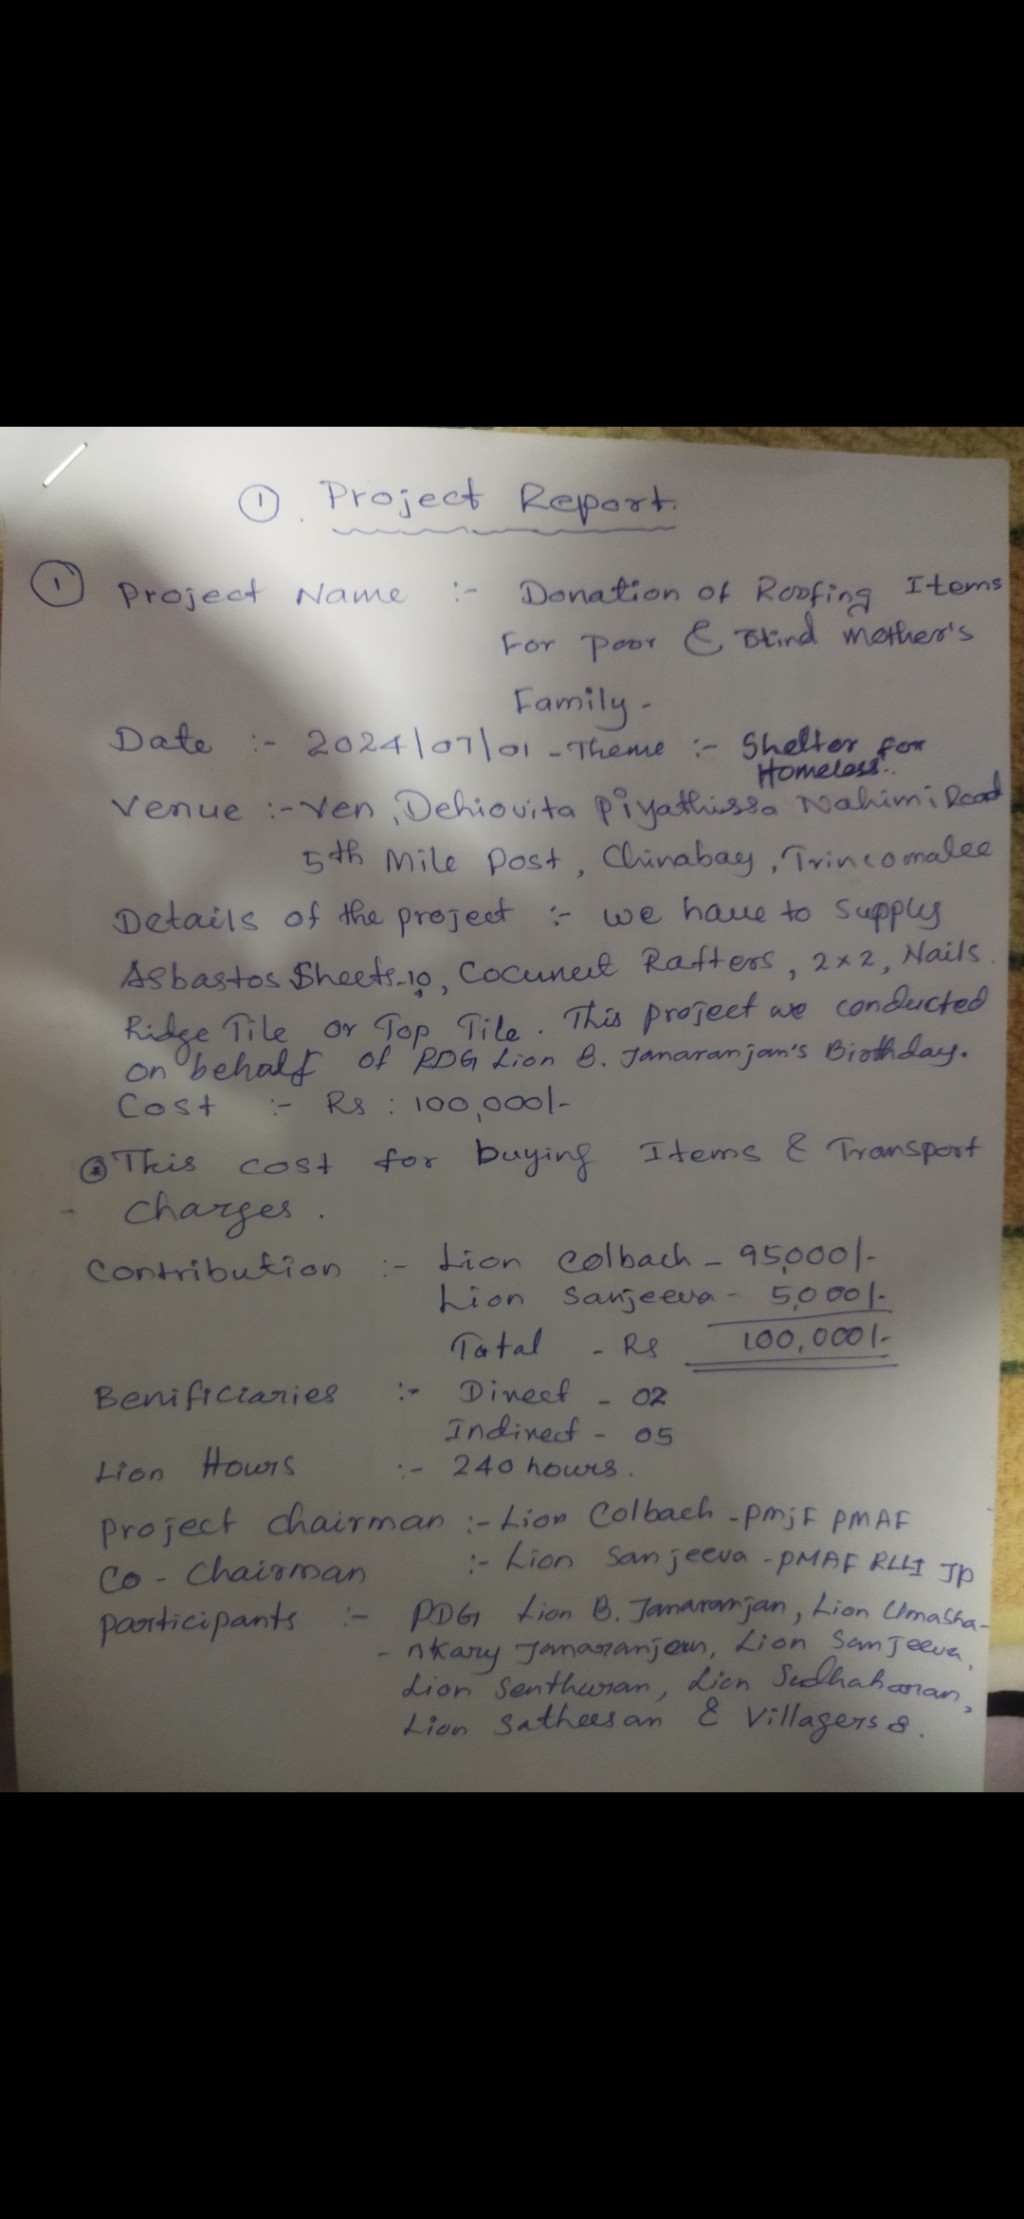 ① . Project Report.
① Project Name :- Donation of Roofing Items
For Poor & Blind mother's
Family -
Date :- 2024/07/01 - Theme :- Shelter for
Homeless..
Venue :- Ven, Dehiovita Piyathissa Nahimi Road
5th Mile Post, Chinabay, Trincomalee
Details of the project :- we have to Supply
Asbastos Sheets-10, Cocunut Rafters, 2x2, Nails.
Ridge Tile or Top Tile. This project we conducted
on behalf of PDG Lion B. Janaranjan's Birthday.
Cost :- Rs : 100,000/-
This cost for buying Items & Transport
- Charges.
Contribution :- Lion Colbach - 95,000/-
Lion Sanjeeva - 5,000/-
Total - Rs 100,000/-
Benificiaries :- Direct - 02
Indirect - 05
Lion Hours :- 240 hours.
Project Chairman :- Lion Colbach - PMJF PMAF
Co - Chairman :- Lion Sanjeeva - PMAF RLLI JP
Participants :- PDG Lion B. Janaranjan, Lion Umasha-
- nkary Janaranjan, Lion Sanjeeva,
Lion Senthuran, Lion Sudhaharan,
Lion Satheesan & Villagers 8.